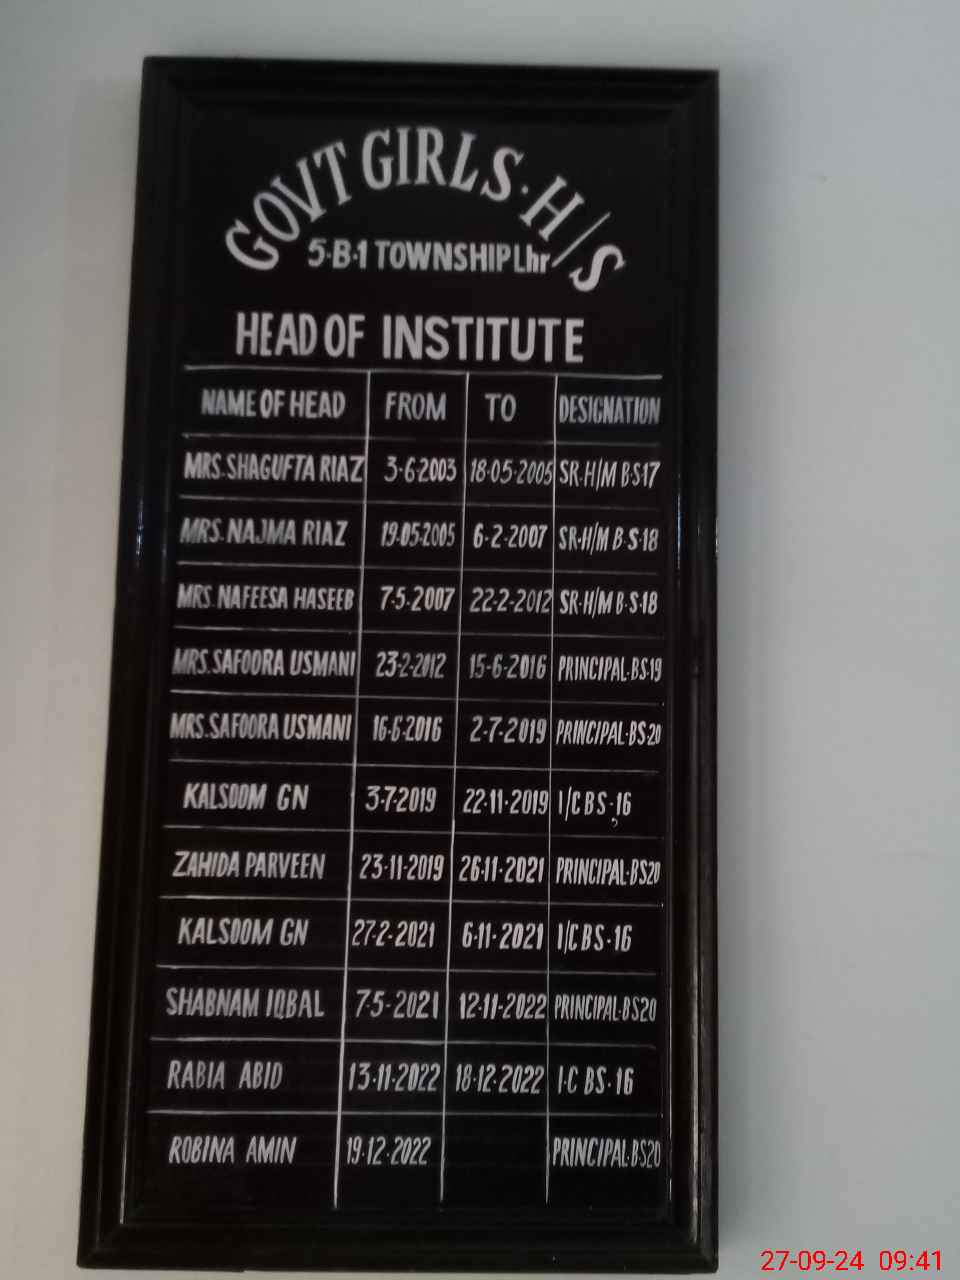 GOVT GIRLS. H/S
5-B-1 TOWNSHIP Lhr
HEAD OF INSTITUTE
NAME OF HEAD FROM TO DESIGNATION
MRS. SHAGUFTA RIAZ 3-6-2003 18-05-2005 SR-H/M B-S-17
MRS. NAJMA RIAZ 19-05-2005 6-2-2007 SR-H/M B-S-18
MRS. NAFEESA HASEEB 7-5-2007 22-2-2012 SR-H/M B-S-18
MRS. SAFOORA USMANI 23-2-2012 15-6-2016 PRINCIPAL-BS-19
MRS. SAFOORA USMANI 16-6-2016 2-7-2019 PRINCIPAL-BS-20
KALSOOM GN 3-7-2019 22-11-2019 I/C BS-16
ZAHIDA PARVEEN 23-11-2019 26-11-2021 PRINCIPAL-BS20
KALSOOM GN 27-2-2021 6-11-2021 I/C BS-16
SHABNAM IQBAL 7-5-2021 12-11-2022 PRINCIPAL-BS20
RABIA ABID 13-11-2022 18-12-2022 I-C BS-16
ROBINA AMIN 19-12-2022 PRINCIPAL-BS20
27-09-24 09:41